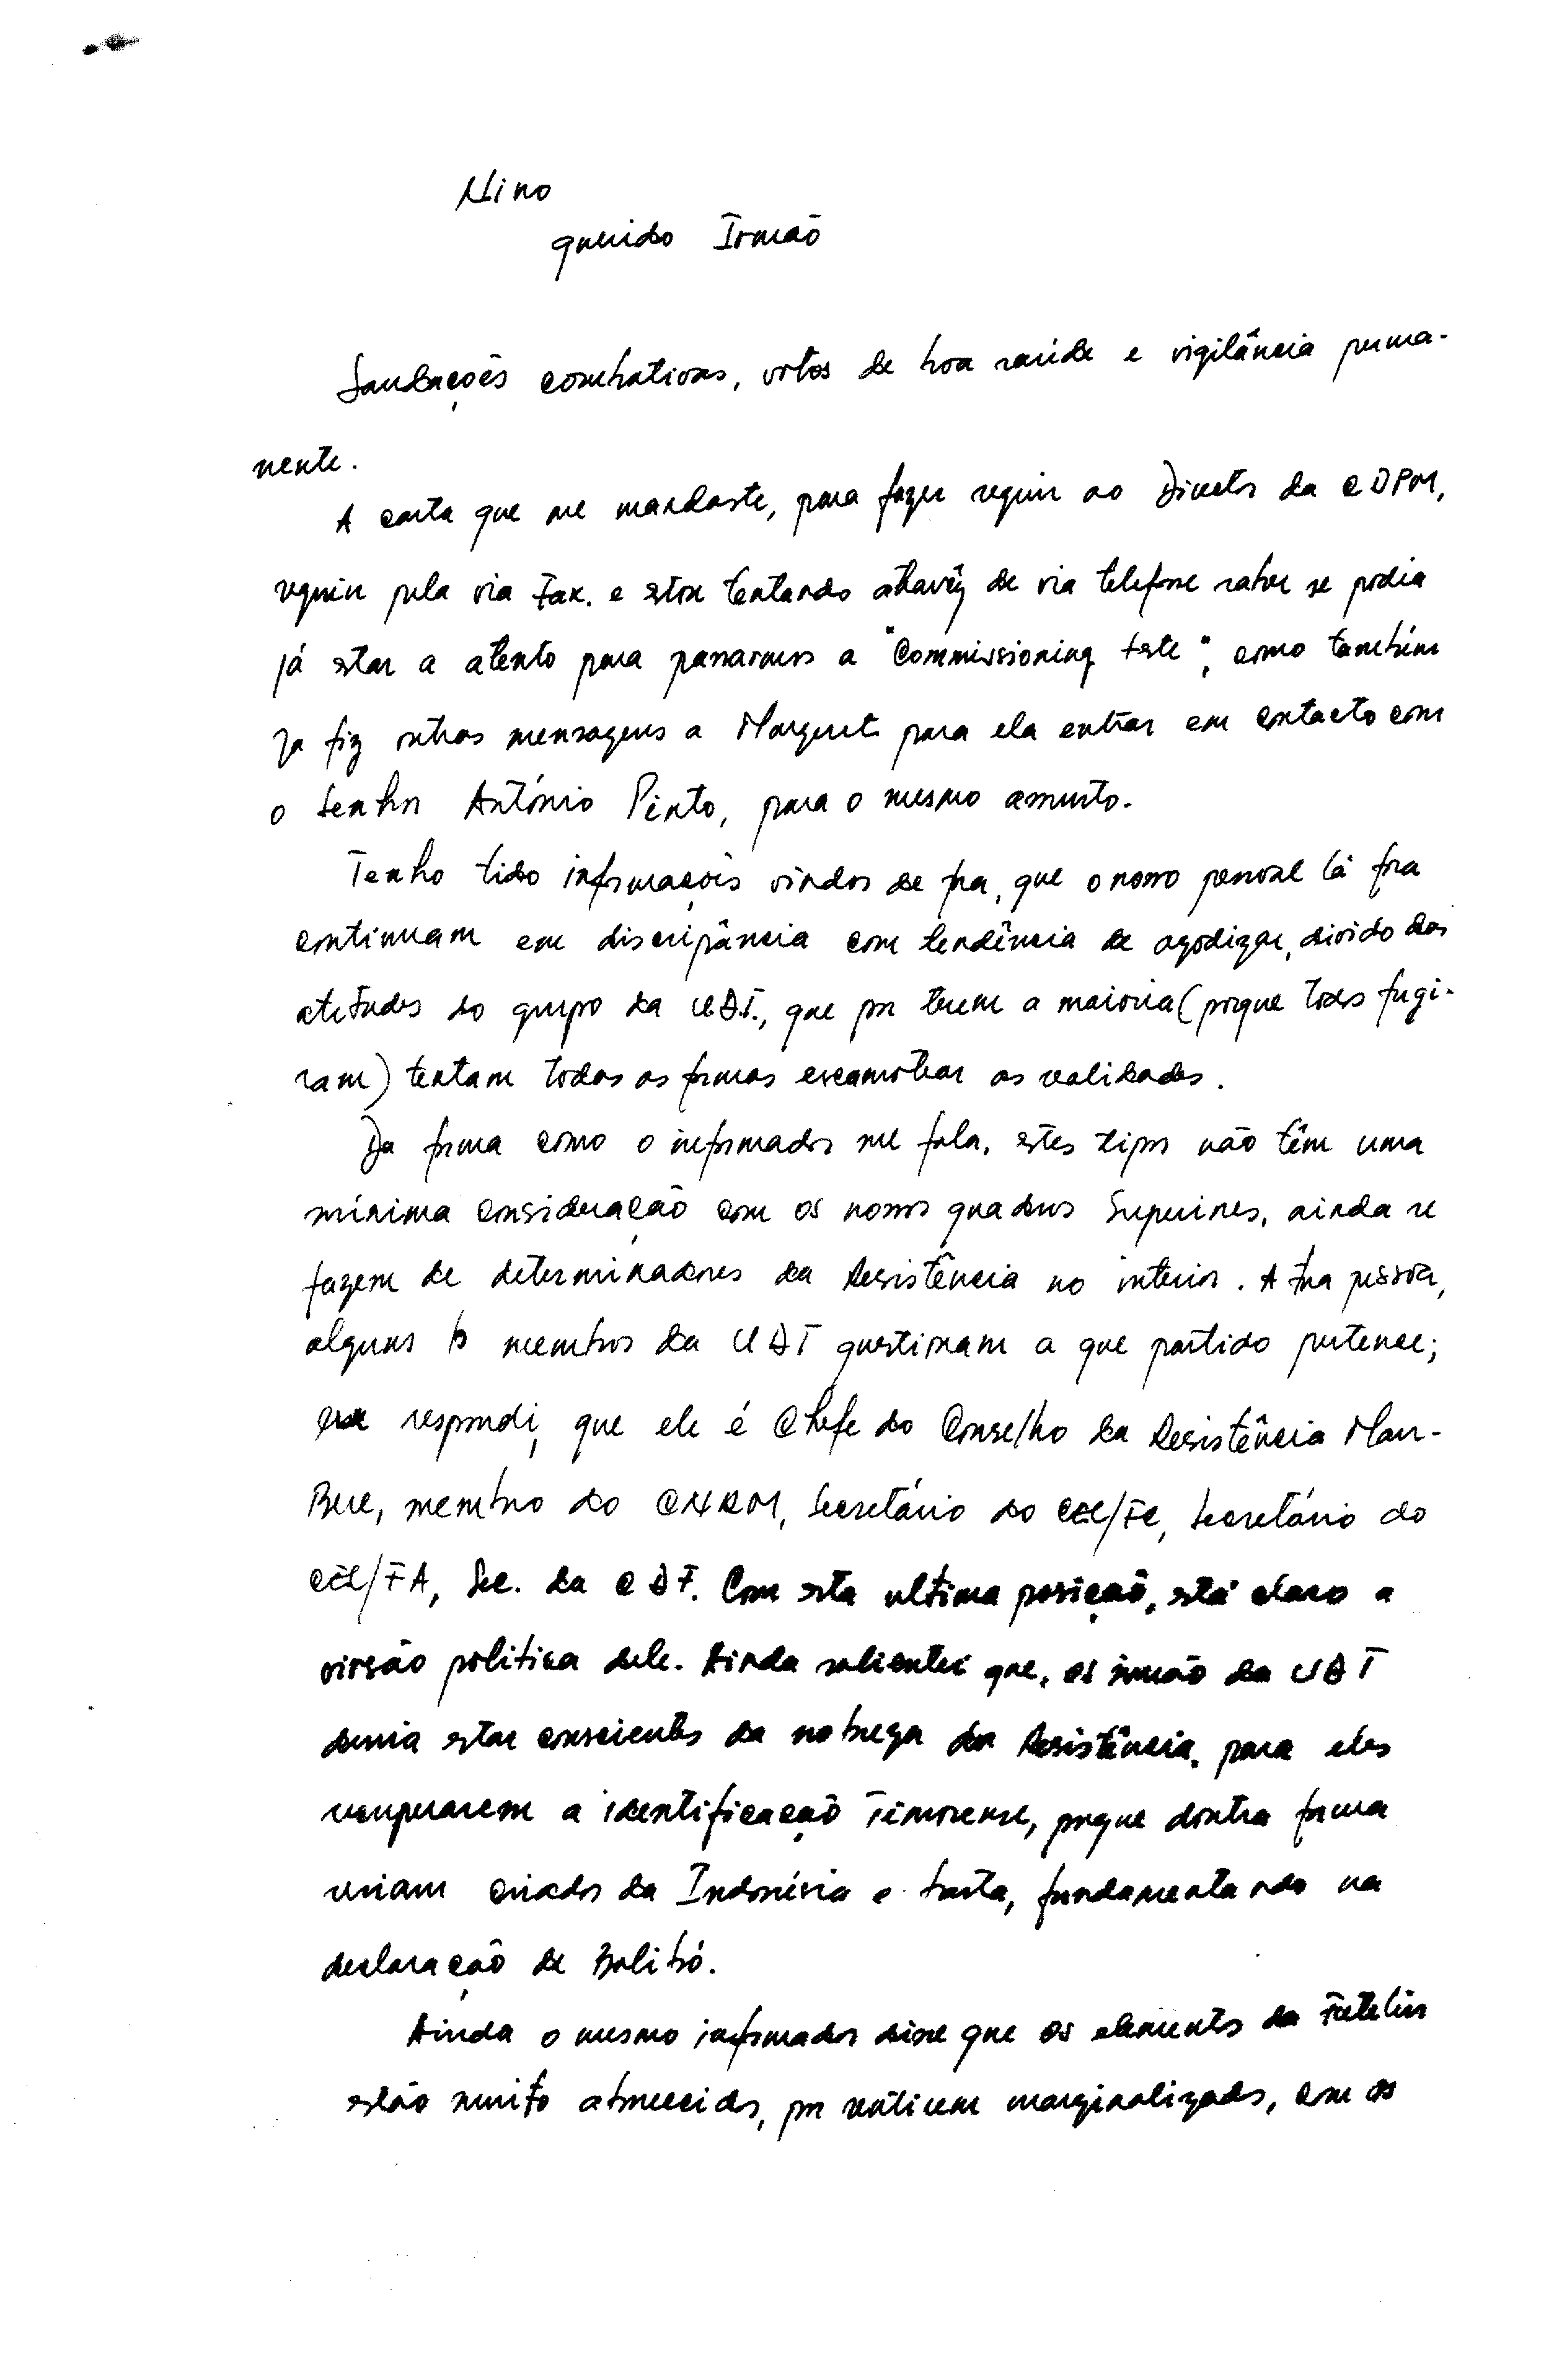 Nino
querido Irmão
Saudações combativas, votos de boa saúde e vigilância perma-
nente.
A carta que me mandaste, para fazer seguir ao Director da CDPM,
seguiu pela via Fax. e estou tentando através de via telefone saber se podia
já estar a atento para passarmos a "Commissioning teste", como também
Ja fiz outras mensagens a Margeret para ela entrar em contacto com
o Senhor António Pinto, para o mesmo assunto.
Tenho tido informações vindos de fora, que o nosso pessoal lá fora
continuam em discripância com tendência de agodizar, divido das
atitudes do grupo da UDT., que por terem a maioria (porque todos fugi-
ram) tentam todas as formas escamotear as realidades.
Da forma como o informador me fala, estes tipos não têm uma
mínima consideração com os nossos quadros Superiores, ainda se
fazem de determinadores da Resistência no interior. A tua pessoa,
alguns membros da UDT questionam a que partido pertence;
eu respondi, que ele é Chefe do Conselho da Resistência Mau-
Bere, membro do CNRM, Secretário do CEL/FC, Secretário do
CEL/FA, Sec. da CDF. Com esta ultima posição, está claro a
visão politica dele. Ainda salientei que, os irmão da UDT
devia estar conscientes da nobreza da Resistência, para eles
recuperarem a identificação Timorense, porque doutra forma
seriam criados da Indonésia e basta, fundamentando na
declaração de Balibó.
Ainda o mesmo informador disse que os elementos da Fretelin
estão muito aborrecidos, por sentirem marginalizados, com os